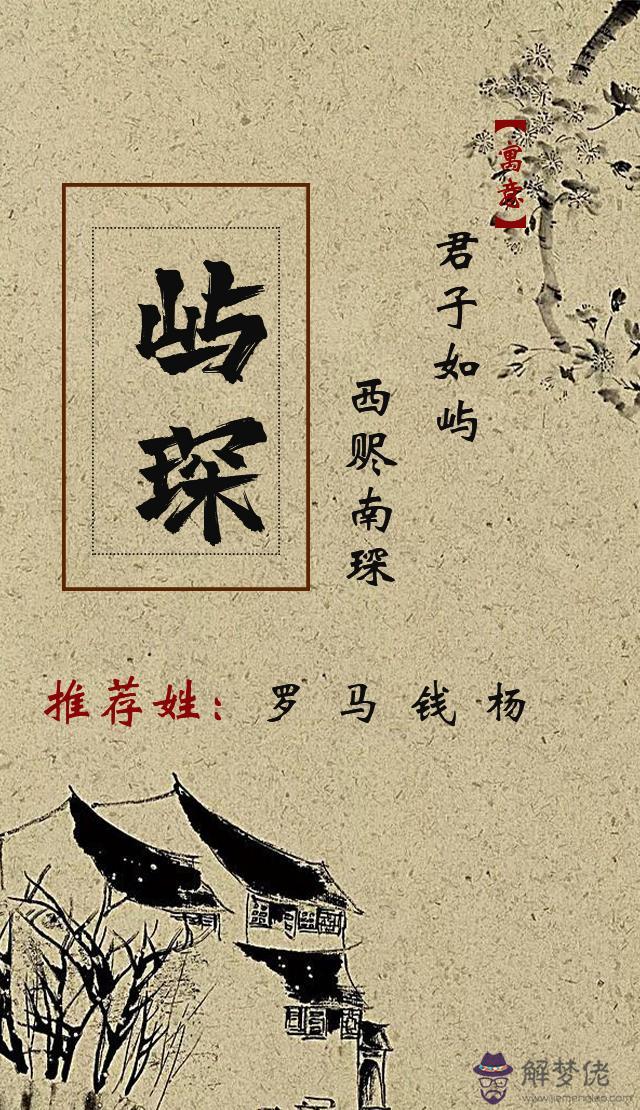 【寓意】
君子如屿
西赆南琛
屿琛
推荐姓：罗 马 钱 杨
解梦佬
www.jiemenglao.com